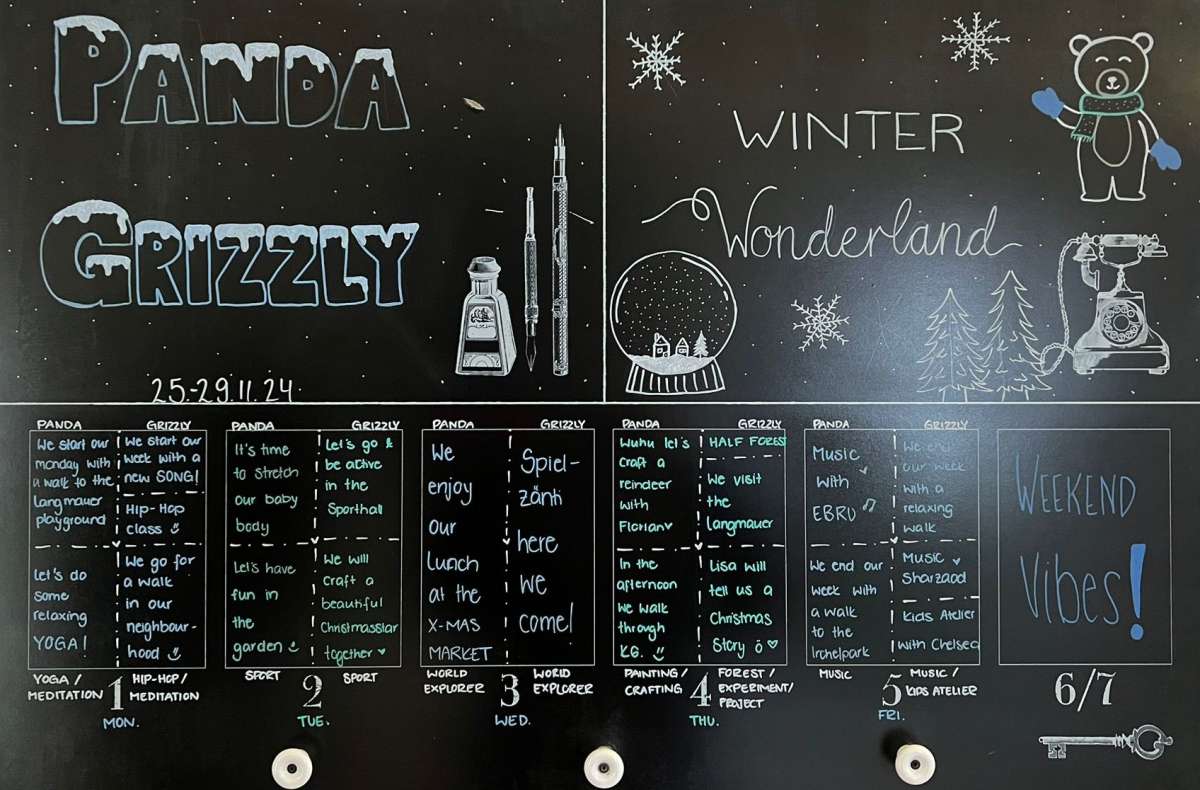 PANDA
GRIZZLY
25.-29.11.24
WINTER
Wonderland
PANDA
We start our
monday with
a walk to the
langmauer
playground
Let's do
some
relaxing
YOGA!
YOGA /
MEDITATION
GRIZZLY
We start our
week with a
new SONG!
HIP-HOP
class
We go for
a walk
in our
neighbour-
hood
HIP-HOP/
MEDITATION
1
MON.
PANDA
It's time
to stretch
our baby
body
Let's have
fun in
the
garden
SPORT
GRIZZLY
Let's go &
be active
in the
Sporthall
We will
craft a
beautiful
Christmasstar
together
SPORT
2
TUE.
PANDA
We
enjoy
our
Lunch
at the
X-MAS
MARKET
WORLD
EXPLORER
GRIZZLY
Spiel-
zänti
here
we
come!
WORLD
EXPLORER
3
WED.
PANDA
Wuhu let's
craft a
reindeer
with
Florian
In the
afternoon
we walk
through
K.G.
PAINTING/
CRAFTING
GRIZZLY
HALF FOREST
We visit
the
langmauer
Lisa will
tell us a
Christmas
Story ö
FOREST/
EXPERIMENT/
PROJECT
4
THU.
PANDA
Music
with
EBRU
We end our
week with
a walk
to the
Irchelpark
MUSIC
GRIZZLY
We end
our week
with a
relaxing
walk
Music
Sharzaad
Kids Atelier
with Chelsea
MUSIC /
KIDS ATELIER
5
FRI.
WEEKEND
Vibes!
6/7